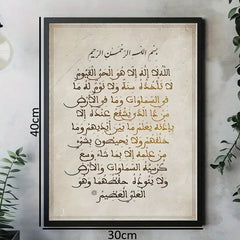 بسم الله الرحمن الرحيم
الله لا إله إلا هو الحي القيوم
لا تأخذه سنة ولا نوم له ما
في السماوات وما في الأرض
من ذا الذي يشفع عنده إلا
بإذنه يعلم ما بين أيديهم وما
خلفهم ولا يحيطون بشيء
من علمه إلا بما شاء وسع
كرسيه السماوات والأرض
ولا يئوده حفظهما وهو
العلي العظيم
40cm
30cm